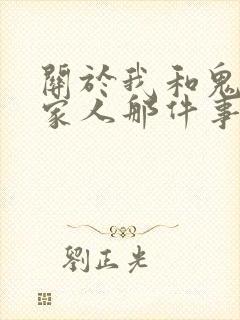 關於我和鬼
家人那件事
劉正光